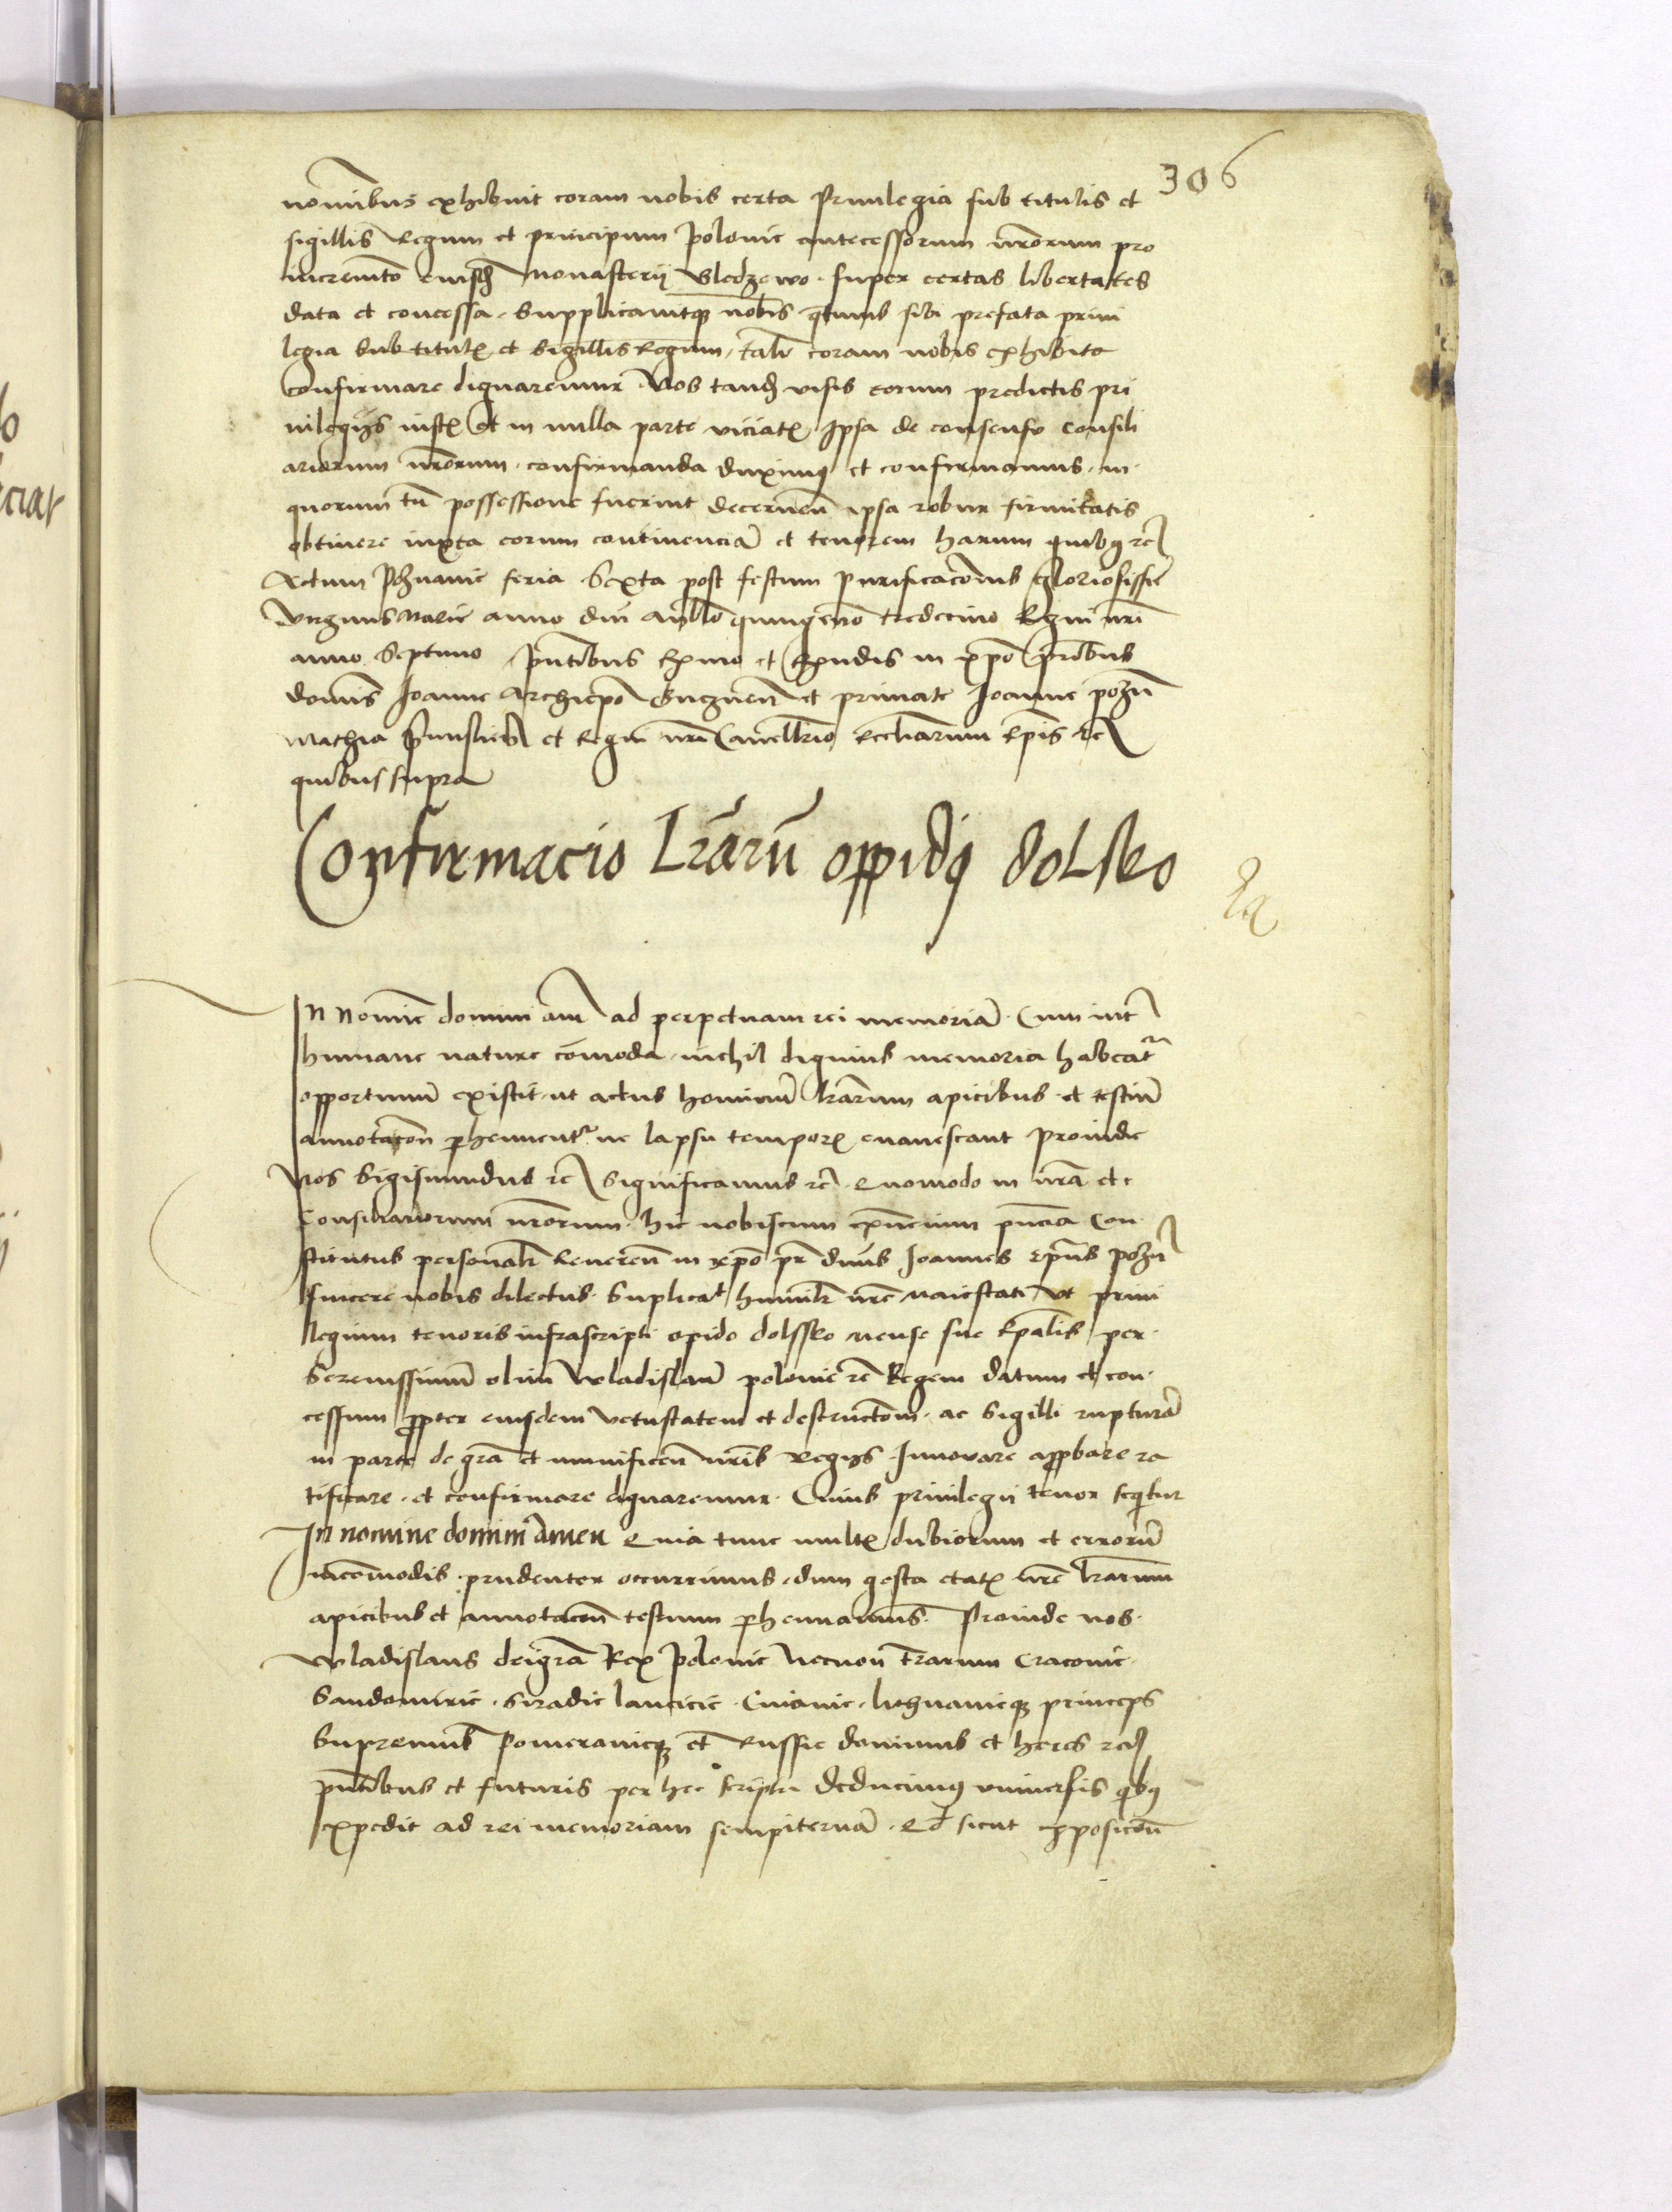 306
nominibus exhibuit coram nobis certa Privilegia sub titulis et
sigillis Regum et principum polonie antecessorum nr̃orum pro
incremẽto eiusdẽ Monasterij Bledzewo. super certas libertates
data et concessa. Supplicavitq̃ nobis q̃tinus sibi prefata privi
legia sub titulis et sigillis Regum, talr̃ coram nobis exhibita
confirmare dignaremur Nos tandẽ visis eorum predictis pri
vilegijs iustis et in nulla parte viciatis Ipsa de consensu consili
ariorum nr̃orum. confirmanda duximus et confirmamus. in
quorum tñ possessione fuerint decerneñ ipsa robur firmitatis
obtinere iuxta eorum continenciã et tenorem harum quibus rc̃
Actum Posnanie feria Sexta post festum purificacõnis gloriosissie
virginis Marie anno dñi Millõ quingenõ tredecimo Regni nr̃i
anno Septimo p̃ntibus Rx̃mo et Rx̃ndis in xp̃o pr̃ibus
domĩs Joanne Archiepõ Gneznẽn et primate Joanne pozñ
Mathia p̃misliẽn et Regni nr̃i Cancellario Eccl̃iarum Ep̃is rc̃
quibus supra
Confirmacio Lr̃arũ oppidi dolsko
In Nomĩe domini amẽ ad perpetuam rei memoriã. Cum int̃
humane nature comoda. nichil dignius memoria habeat̃
opportunũ existit. ut actus hominũ lr̃arum apicibus et testiũ
annotacõn p̃hennent̃ ne lapsu temporis evanescant Proinde
Nos Sigismundus rc̃ Significamus rc̃. Quomodo in nr̃a et
Consiliariorum nr̃orum. hic nobiscum exñcium pñcia Con
stitutus personalr̃ Reverẽn in xp̃o pr̃ dñus Joannes ep̃us pozñ
sincere nobis dilectus. Suplicat̃ humilr̃ nr̃e Maiestati ut privi
legium tenoris infrascripti opido dolssko Mense sue Ep̃alis per
Serenissimũ olim Wladislaũ polonie rc̃ Regem datum et con
cessum propter eiusdem vetustatem et destructõm. ac Sigilli rupturã
in parte de gr̃a et munificẽn nr̃is Regijs Innovare approbare ra
tificare. et confirmare dignaremur. Cuius privilegii tenor seq̃tur
In nomine domini Amen Quia tunc multis dubiorum et errorũ
incõmodis prudenter occurrimus. dum gesta etatis nr̃e lr̃arum
apicibus et annotacõn testium p̃hennamus. Proinde nos.
Wladislaus dei gr̃a Rex polonie Necnon t̃rarum Cracovie.
Sandomirie. Siradie lancicie. Cuiavie. lithuanieq̃ princeps
Supremus Pomeranieq̃ et Russie dominus et heres rc̃
p̃ntibus et futuris per hec scripta deducimus universis q̃bus
expedit ad rei memoriam sempiternã. Qd̃ sicut